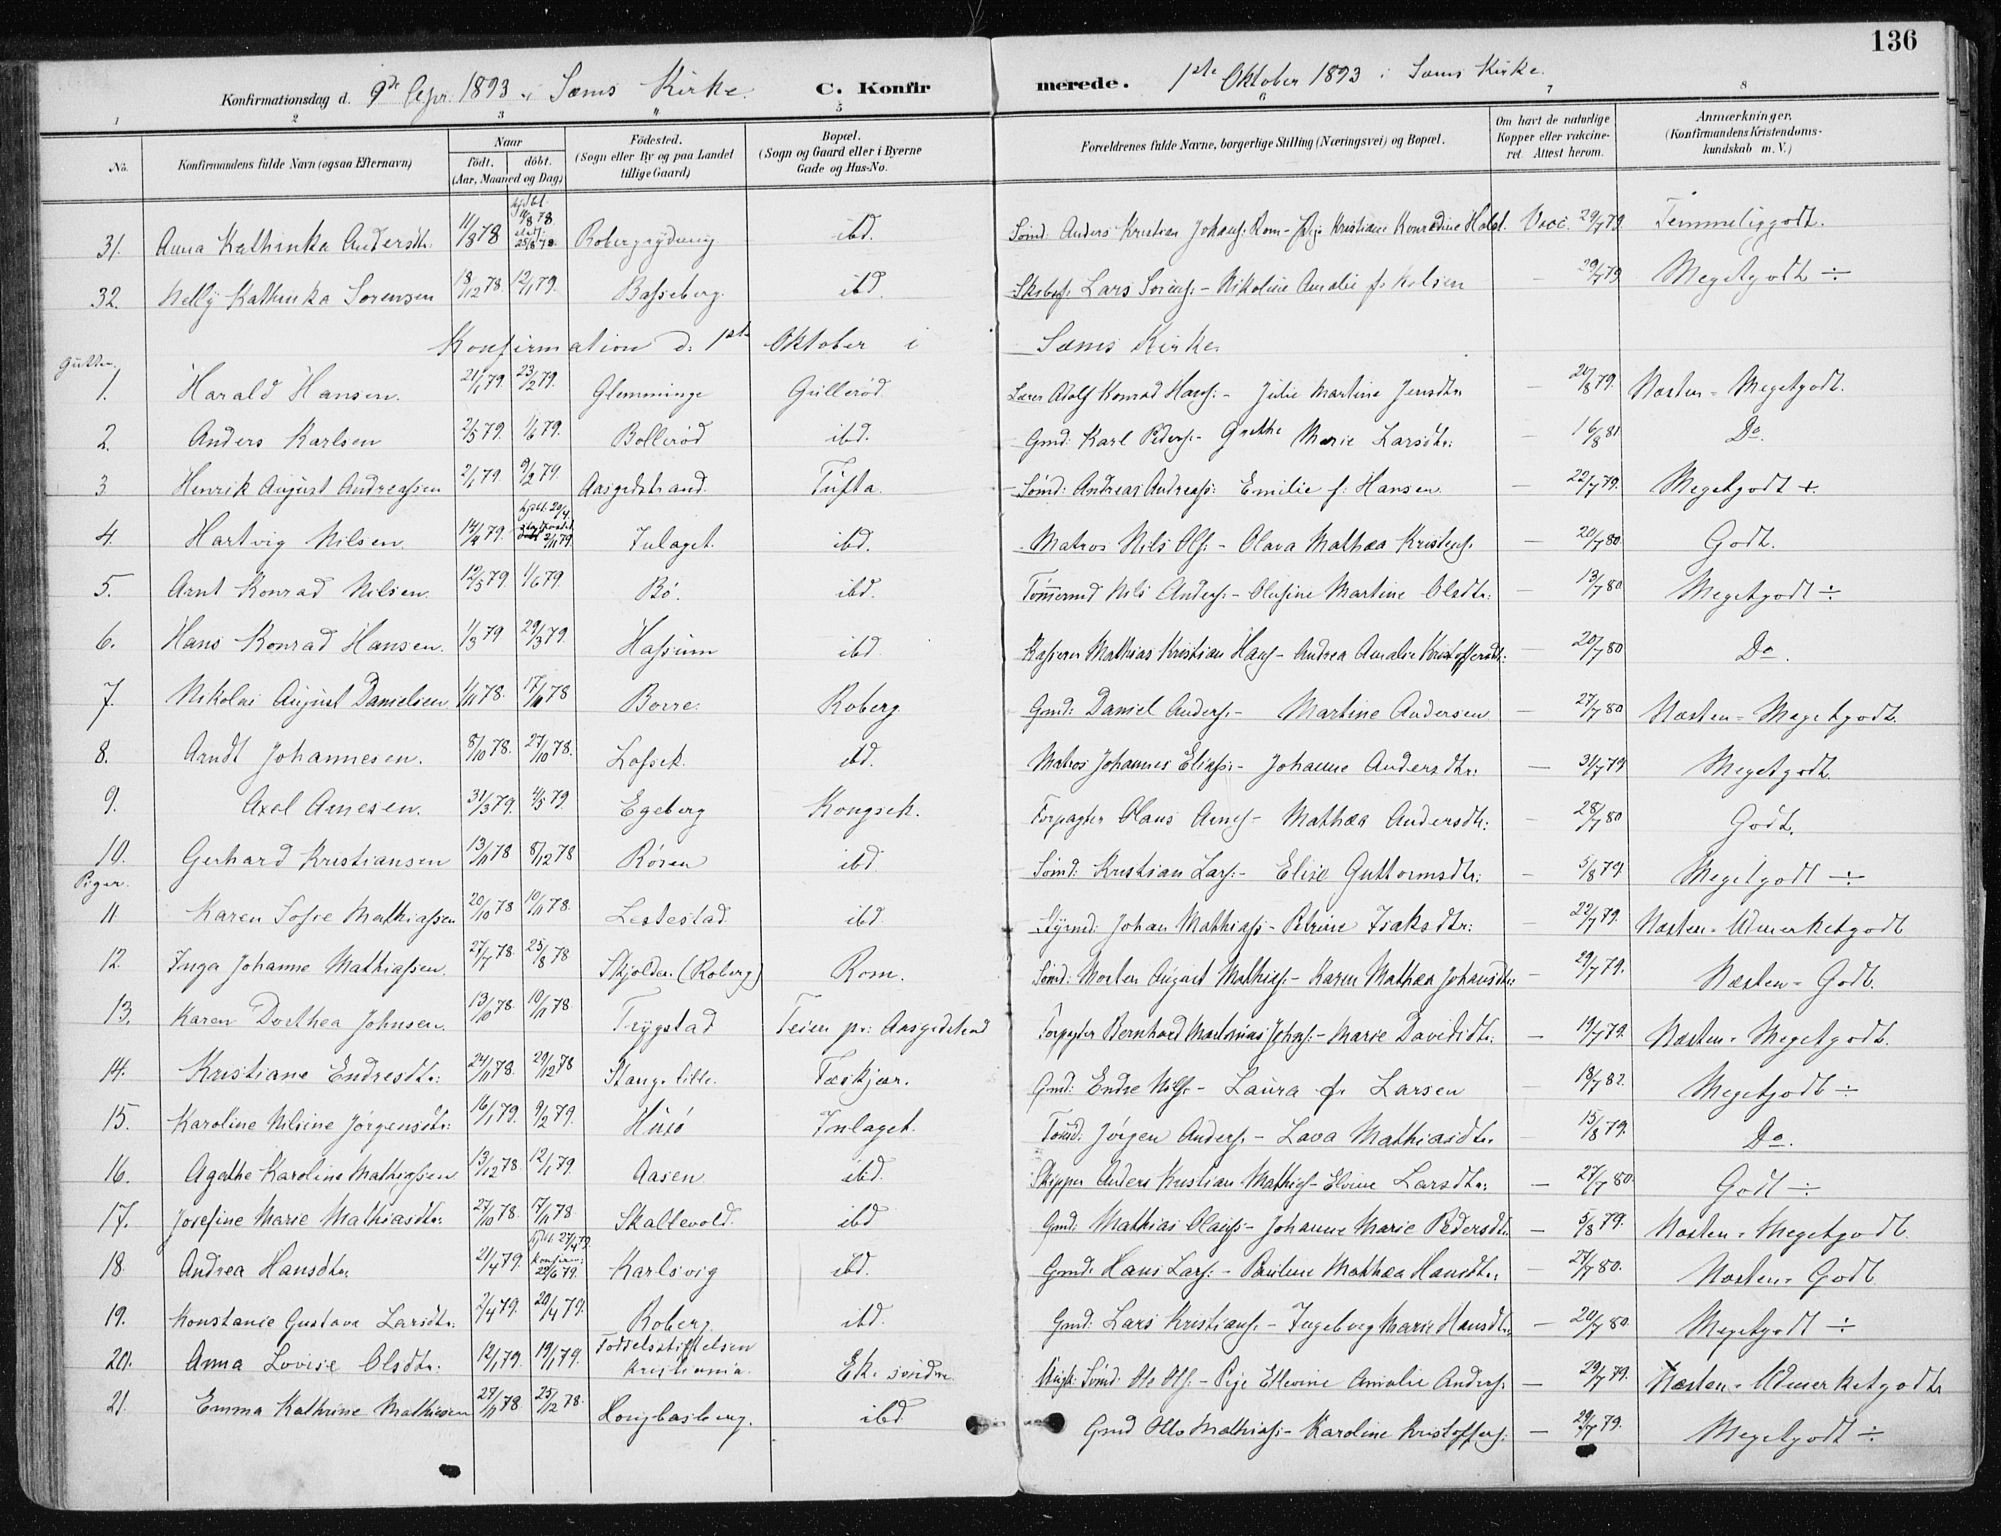 136
Konfirmationsdag d. 9de Apr. 1893 i Sems Kirke. C. Konfirmerede. 1ste Oktober 1893 i Sems Kirke.
1 2 3 " 5 6 7 8
No. Konfirmandens fulde Navn (ogsaa Efternavn) Naar Födt. döbt. (Aar, Maaned og Dag) Födested. (Sogn eller By og paa Landet tillige Gaard) Bopæl. (Sogn og Gaard eller i Byerne Gade og Hus-No. Forældrenes fulde Navne, borgerlige Stilling (Næringsvei) og Bopæl. Om havt de naturlige Kopper eller vakcineret. Attest herom. Anmærkninger. (Konfirmandens Kristendomskundskab m. V.)
31. Anna Kathinka Andersdtr. 11/8 78 ibd. Sømd. Anders Kristian Johans. Rom - Pige Kristiane Konradine Holst. Vacc. 29/7 79. Temmeliggodt.
32. Nelly Kathinka Sorensen 18/12 78. 12/1 79. Basseberg. ibd. Lars Sørens. - Nikoline Amalie f. - 29/7 79 Megetgodt ÷
Konfirmation d. 1ste Oktober i Sems Kirke.
Gutter.
1. Harald Hansen. 21/1 79. 23/2 79. Glemminge Gullerød. Lærer Adolf Konrad Hans: - Julie Martine Jensdtr. - 20/8 79. Næsten = Megetgodt.
2. Anders Karlsen 2/5 79. 1/6 79. Bollerød ibd. Gmd: Karl Peders. - Grethe Marie Larsdtr: - 16/8 81 Do.
3 Henrik August Andreassen 2/1 79. 9/2 79. Aasgdstrand. Tufta. Sømd: Andreas Andreass: Emilie f. Hansen - 22/7 79. Megetgodt +.
4. Hartvig Nilsen 14/4 79. Inlaget. ibd. Matros Nils Ols: - Olava Mathea Kristens. - 20/7 80. Godt.
5. Arnt Konrad Nilsen. 12/5 79. 1/6 79. Bø. ibd. Tømmermd Nils Anders. - Olufine Martine Olsdtr: - 13/7 80 Megetgodt ÷
6. Hans Konrad Hansen. 1/3 79 29/3 79 Hassum ibd. Kasserer Mathias Kristian Hans - Andrea Amalie Kristoffersdtr: - 20/7 80 Do.
7. Nikolai August Danielsen 1/11 78. 17/11 78 Borre. Roberg Gmd: Daniel Anders. - Martine Andersen - 27/7 80 Næsten = Megetgodt.
8. Arndt Johannesen. 8/10 78. 27/10 78. ibd. Matros Johannes Elias: - Johanne Andersdtr: - 31/7 79 Megetgodt.
9. Axel Arnesen. 31/3 79. 4/5 79. Egeberg Kongsek. Forpagter Olaus Arnes - Mathea Andersdtr: 28/7 80 Godt.
10. Gerhard Kristiansen 13/11 78 8/12 78 Røren ibd. Sømd: Kristian Lars: - Elise Guttormsdtr: - 5/8 79. Megetgodt ÷
Piger.
11 Karen Sofie Mathiassen 20/10 78 10/11 78. Lestestad. ibd. Styrmd: Johan Mathiass - Petrine Isaksdtr: - 22/7 79. Næsten = Udmerketgodt
12. Inga Johanne Mathiassen. 27/7 78. 25/8 78 Skjolden (Roberg) Rom. Sømd: Morten August Mathias. - Karen Mathea Johansdtr: 29/7 79. Næsten = Godt.
13. Karen Dorthea Johnsen. 13/10 78. 10/11 78 Trygstad Teien pr: Aasgdstrand Forpagter Bernhard Martinius Johns: - Marie Davidsdtr: - 19/7 79. Næsten = Megetgodt.
14. Kristiane Endresdtr: 24/11 78. 29/12 78 Stange lille. Taskjær. Gmd: Endre Nils. - Laura f. Larsen - 18/7 82. Megetgodt ÷
15. Karoline Nilsine Jørgensdtr: 16/1 79. 9/2 79. Husø Inlaget. Tømd: Jørgen Anders. - Lava Mathiasdtr. - 15/8 79. Do.
16. Agathe Karoline Mathiassen 13/12 78. 12/1 79. Aasen ibd. Skipper Anders Kristian Mathias - Elvine Larsdtr: - 27/7 80. Godt ÷
17. Josefine Marie Mathiasdtr: 27/10 78. 17/11 78. Skallevold. ibd Gmd: Mathias Olauss - Johanne Marie Pedersdtr - 5/8 79. Næsten = Megetgodt.
18. Andrea Hansdtr. 21/4 79. hjdbt. 27/4 79. konfirm: 29/6 79. Karlsvig ibd. Gmd: Hans Lars: - Pauline Mathea Hansdtr: - 27/7 80. Næsten = Godt
19. Konstance Gustava Larsdtr: 2/4 79. 20/4 79. Roberg ibd. Gmd: Lars Kristians. - Ingeborg Marie Hansdtr: - 20/7 80. Megetgodt ÷
20. Anna Lovise Olsdtr: 12/1 79. 19/1 79. Fødselsstiftelsen Kristiania. Ek. søndre Sømd: Ole Ols. - Pige Ellevine Amalie Anders. - 29/7 79. Næsten = Udmerketgodt
21. Emma Kathrine Mathisen 27/11 78. 25/12 78. ibd Gmd Otto Mathias: - Karoline Kristoffers. - 29/7 79. Megetgodt ÷